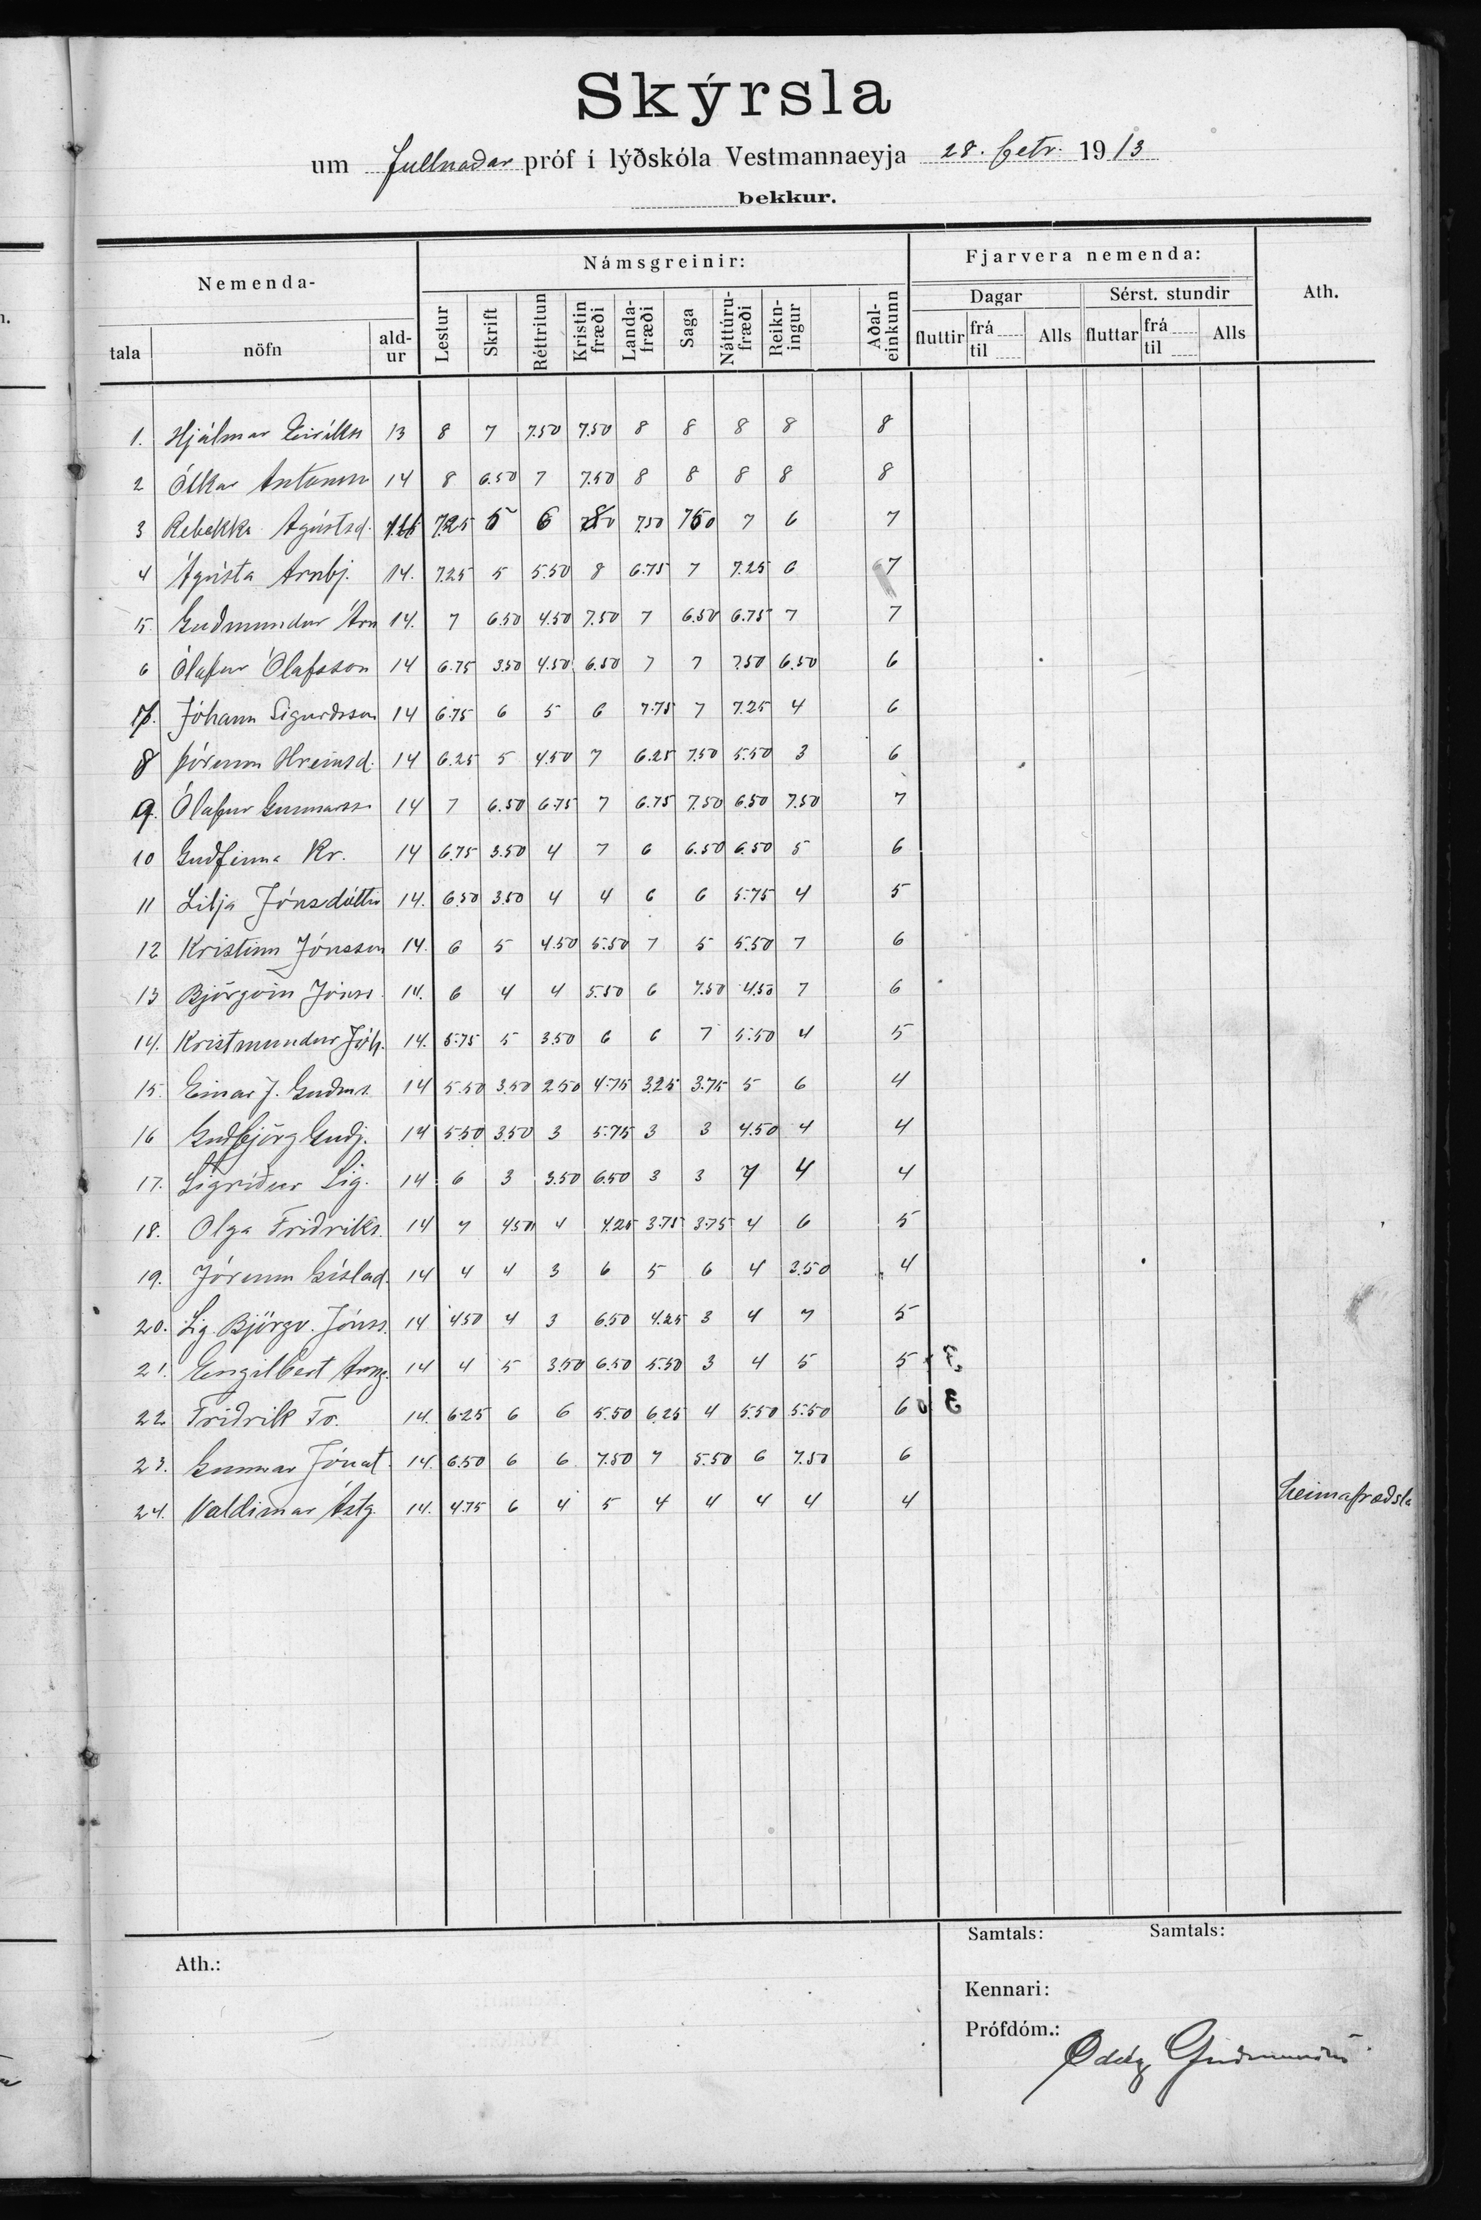 Skýrsla
um Fullnaðar próf í lýðskóla Vestmannaeyja 28. febr. 1913
bekkur.
Nemenda- Námsgreinir: Fjarvera nemenda: Ath.
Dagar Sérst. stundir
tala nöfn ald-ur Lestur Skrift Réttritun Kristin fræði Landa-fræði Saga Náttúru-fræði Reikn-ingur Aðal-einkunn fluttir frá til Alls fluttar frá til Alls
1. Hjálmar Eiríkss 13 8 7 7.50 7.50 8 8 8 8 8
2 Ólkar Antonss 14 8 6.50 7 7.50 8 8 8 8 8
3 Rebekka Ágústsd. 7.25 5 6 7.50 7.50 7 6 7
4 Ágústa Arnbj. 14. 7.25 5 5.50 8 6.75 7 7.25 6 7
5. Guðmundur Árn 14. 7 6.50 4.50 7.50 7 6.50 6.75 7 7
6 Ólafur Ólafsson 14 6.75 3.50 4.50 6.50 7 7 7.50 6.50 6
7. Jóhann Sigurðsson 14 6.75 6 5 6 7.75 7 7.25 4 6
8 Þórunn Hreinsd. 14 6.25 5 4.50 7 6.25 7.50 5.50 3 6
9. Ólafur Gunnarss 14 7 6.50 6.75 7 6.75 7.50 6.50 7.50 7
10 Guðfinna Kr. 14 6.75 3.50 4 7 6 6.50 6.50 5 6
11 Lilja Jónsdóttir 14. 6.50 3.50 4 4 6 6 5.75 4 5
12 Kristinn Jónsson 14. 6 5 4.50 5.50 7 5 5.50 7 6
13 Björgvin Jónss. 14. 6 4 4 5.50 6 7.50 4.50 7 6
14. Kristmundur Jóh. 14. 5.75 5 3.50 6 6 7 5.50 4 5
15. Einar J. Guðms. 14 5.50 3.50 2.50 4.75 3.25 3.75 5 6 4
16 Guðbjörg Guðj. 14 5.50 3.50 3 5.75 3 3 4.50 4 4
17. Sigríður Sig. 14 6 3 3.50 6.50 3 3 4 4
18. Olga Friðriks. 14 7 4.50 4 4.25 3.75 3.75 4 6 5
19. Jórunn Gíslad. 14 4 4 3 6 5 6 4 3.50 4
20. Sig. Björgv. Jónss. 14 4.50 4 3 6.50 4.25 3 4 7 5
21. Engilbert 14 4 5 3.50 6.50 5.50 3 4 5 5
22 Friðrik Fr. 14. 6.25 6 6 5.50 6.25 4 5.50 5.50 6
23. Gunnar Jónat. 14. 6.50 6 6 7.50 7 5.50 6 7.50 6
24. Valdimar Ástg. 14. 4.75 6 4 5 4 4 4 4 4 heimafræðsla
Samtals: Samtals:
Ath.:
Kennari:
Prófdóm.:
Oddg Guðmundss